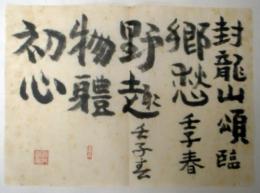 封龍山頌臨
鄉愁 壬子春
野趣 壬子春
物體
初心